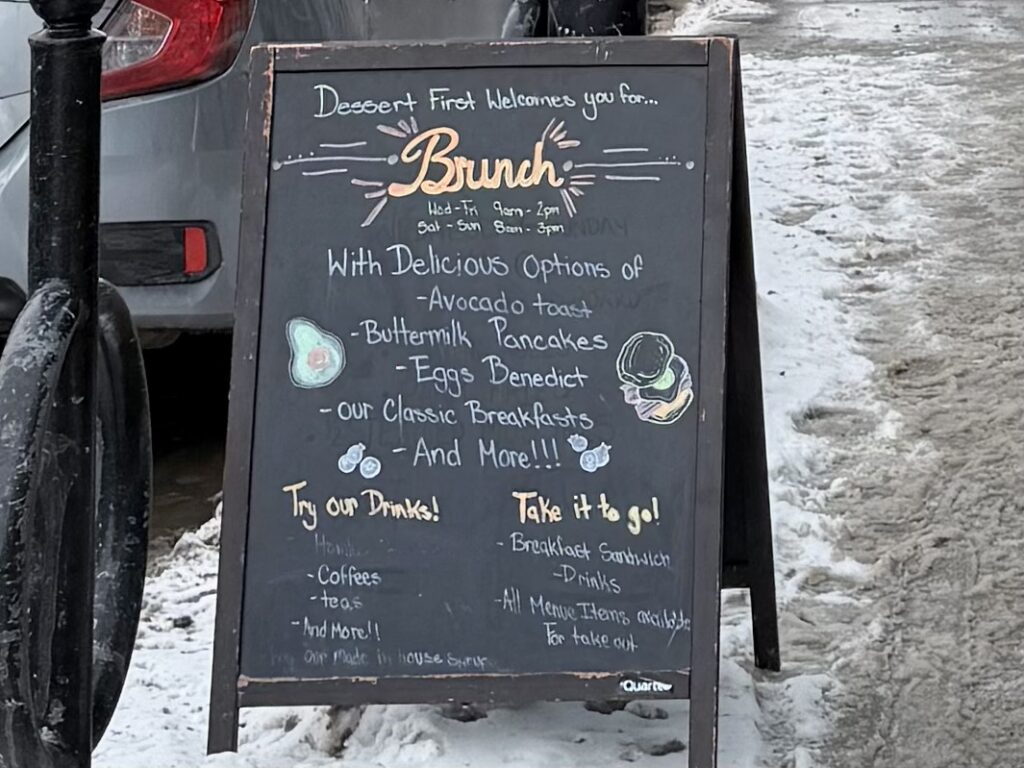 Dessert First Welcomes you for...
Brunch
Wed-Fri 9am - 2pm
Sat - Sun 8am - 3pm
With Delicious Options of
-Avocado toast
-Buttermilk Pancakes
-Eggs Benedict
-Our Classic Breakfasts
-And More!!!
Try our Drinks!
-Coffees
-teas
-And More!!
our Made in house
Take it to go!
- Breakfast Sandwich
-Drinks
-All Menue Items available
For take out
Quartet